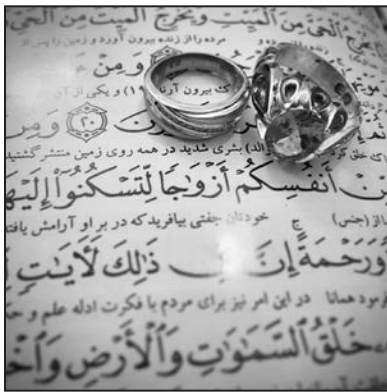 الْحَىَّ مِنَ الْمَيِّتِ وَيُخْرِجُ الْمَيِّتَ مِنَ الْحَىِّ
مرده را از زنده بیرون آورد و زمین را پس از
وَمِنْ
بیرون آرند (۱۹) و یکی از
۲۰ وَمِنْ
بشری شدید در همه روی زمین منتشر گشتید
أَنفُسِكُمْ أَزْوَٰجًا لِّتَسْكُنُوٓا۟ إِلَيْهَا
از (جنس) خودتان جفتی بیافرید که در بر او آرامش یافته
وَرَحْمَةً إِنَّ فِى ذَٰلِكَ لَـَٔايَٰتٍ
همانا در این امر نیز برای مردم با فکرت ادله علم و
خَلْقُ السَّمَٰوَٰتِ وَالْأَرْضِ